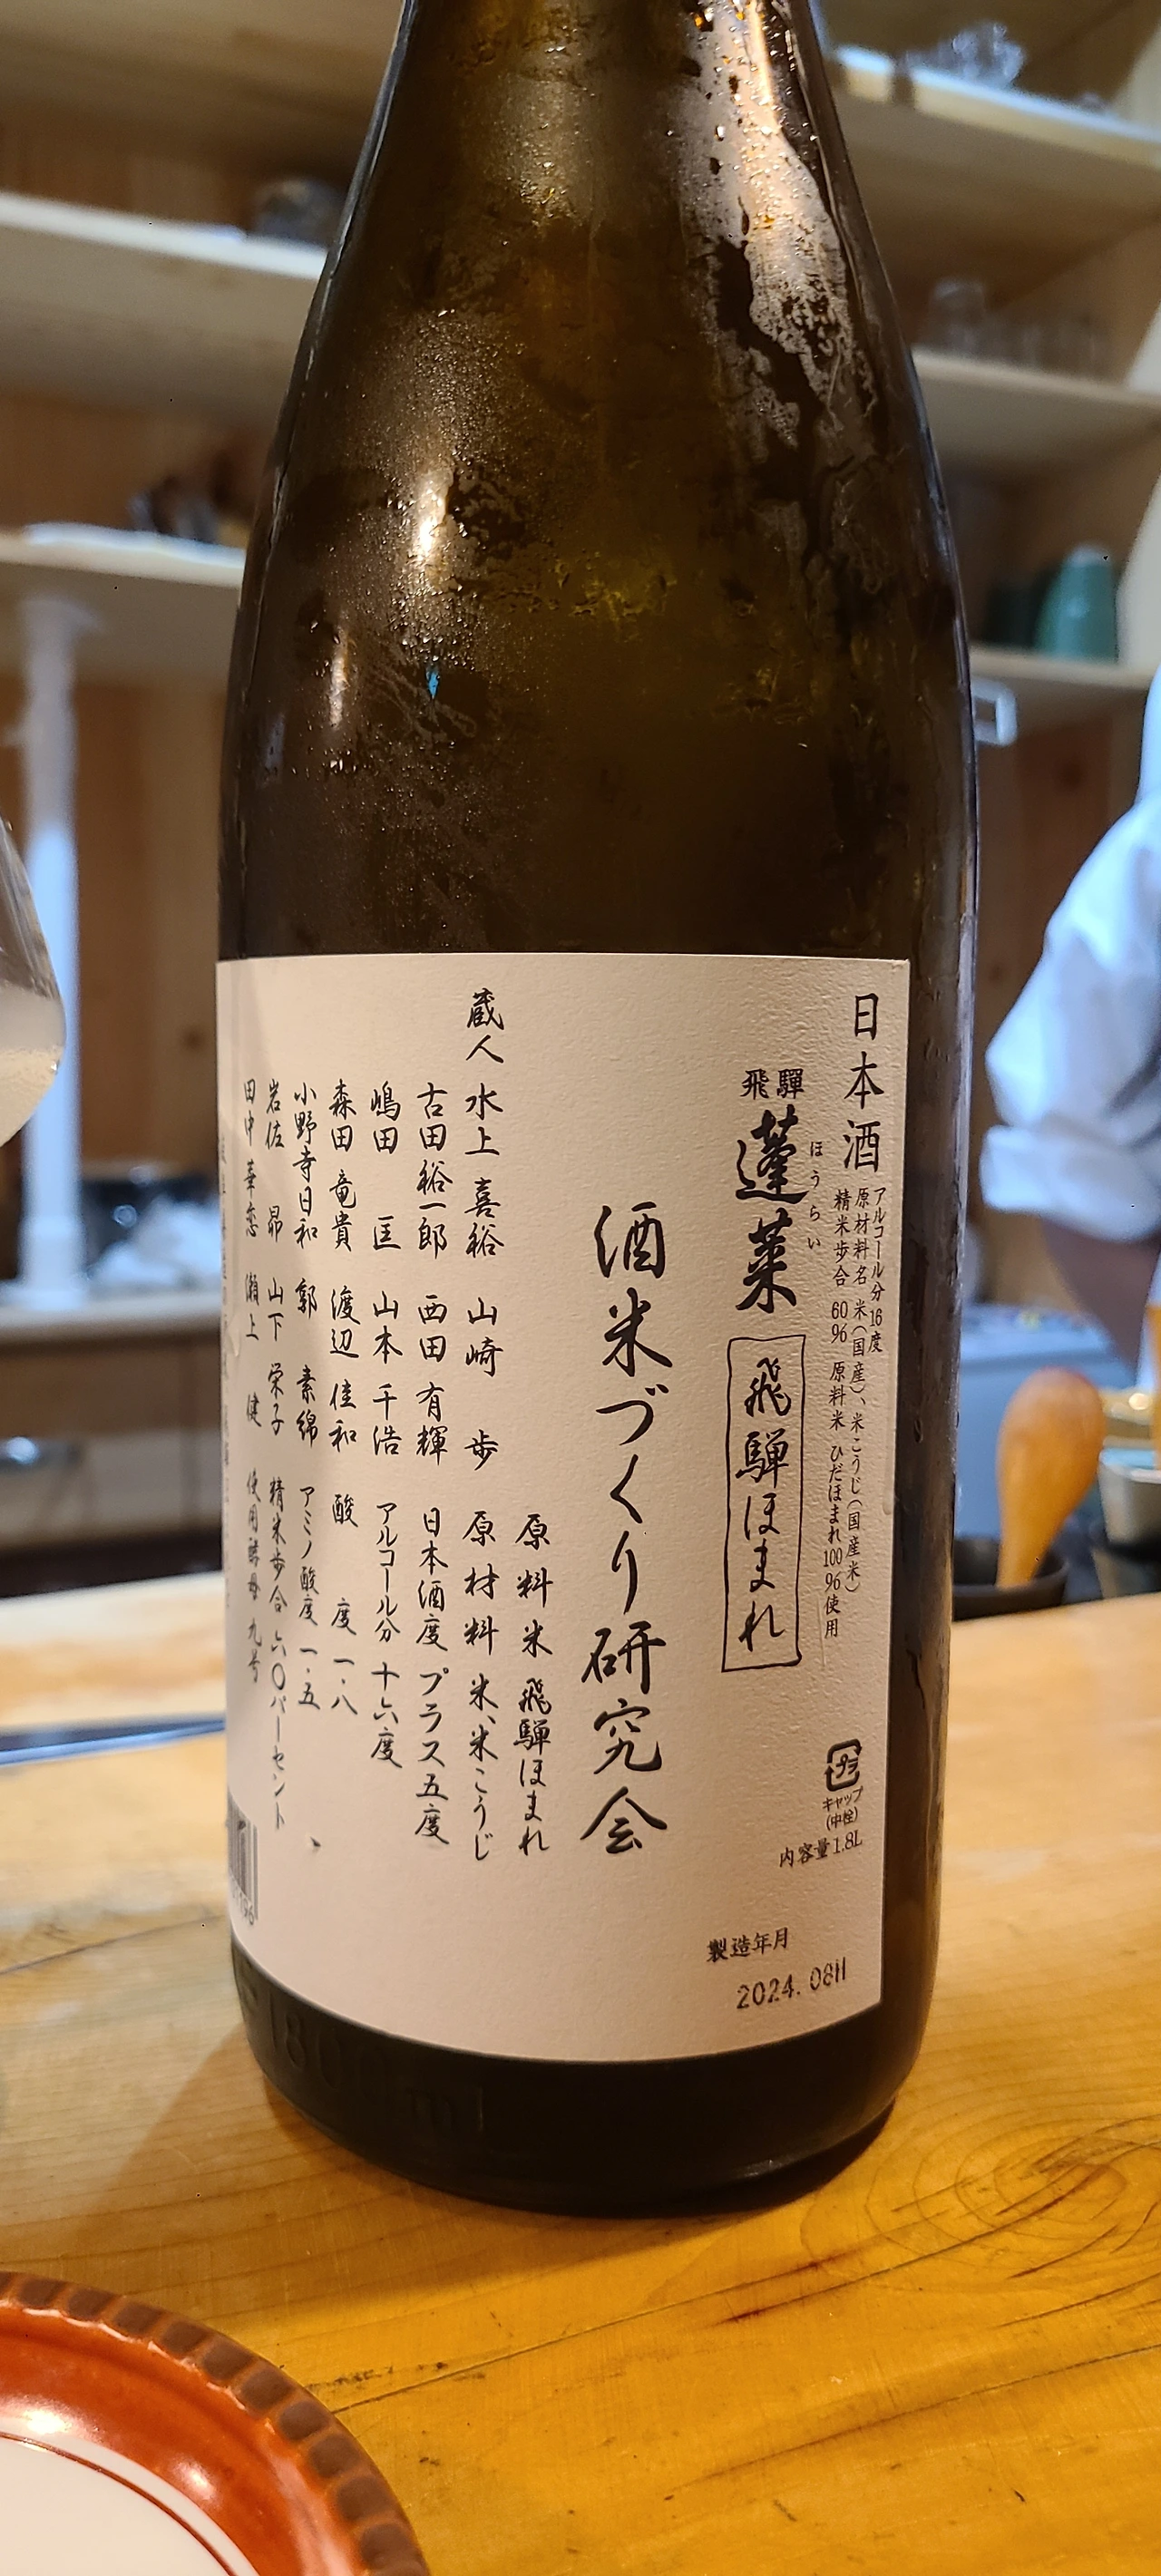 日本酒
アルコール分16度
原材料名 米(国産)、米こうじ(国産米)
精米歩合 60% 原料米 ひだほまれ100%使用
飛騨
ほうらい
蓬莱
飛騨ほまれ
プラ
キャップ
(中栓)
内容量1.8L
製造年月
2024.08H
酒米づくり研究会
原料米 飛騨ほまれ
蔵人 水上喜裕 山崎歩 原材料 米、米こうじ
古田裕一郎 西田有輝 日本酒度 プラス五度
嶋田匡 山本千浩 アルコール分 十六度
森田竜貴 渡辺佳和 酸度 一・八
小野寺日和 郭素綿 アミノ酸度 一・五
岩佐昴 山下栄子 精米歩合 六〇パーセント
田中華恋 瀬上健 使用酵母 九号
1800ml